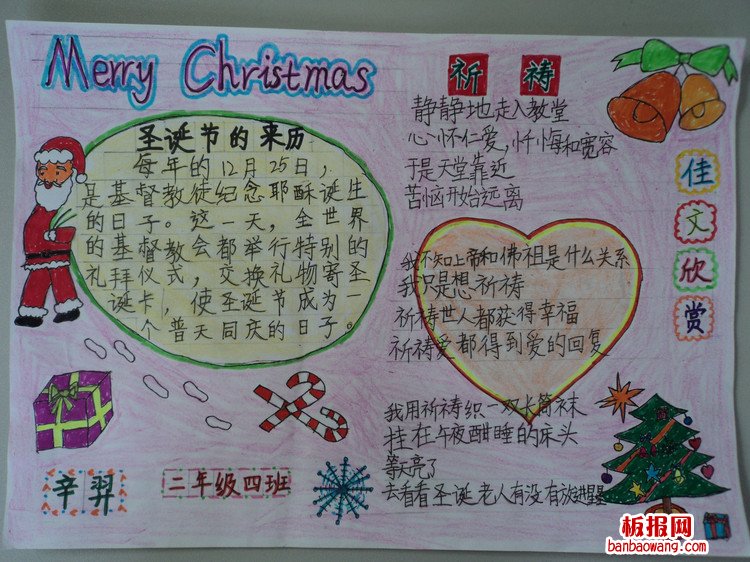 Merry Christmas
圣诞节的来历
每年的12月25日，
是基督教徒纪念耶酥诞生
的日子。这一天，全世界
的基督教会都举行特别的
礼拜仪式，交换礼物寄圣
诞卡，使圣诞节成为一
个普天同庆的日子。
辛羿
二年级四班
祈祷
静静地走入教堂
心怀仁爱，忏悔和宽容
于是天堂靠近
苦恼开始远离
我不知上帝和佛祖是什么关系
我只是想祈祷
祈祷世人都获得幸福
祈祷爱都得到爱的回复
我用祈祷织一双长筒袜
挂在午夜酣睡的床头
等天亮了
去看看圣诞老人有没有放进星星
佳文欣赏
板报网
banbaowang.com